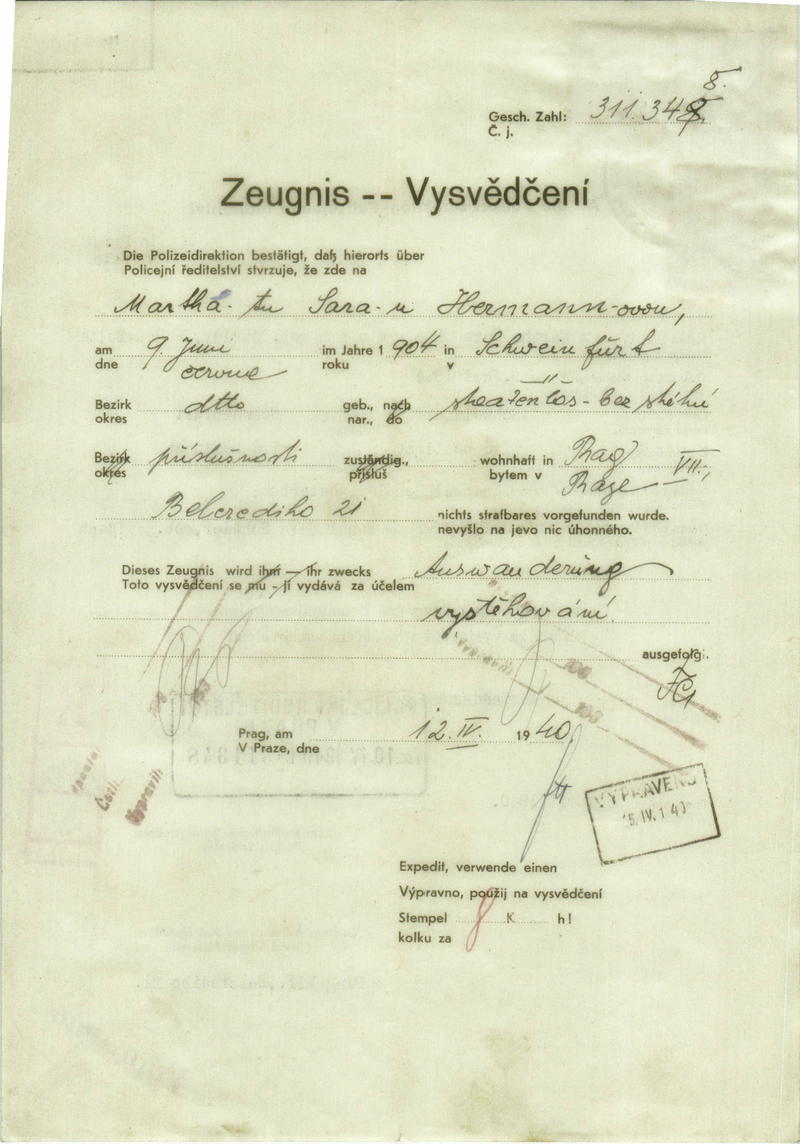 8.
Gesch. Zahl: 311.348
Č. j.
Zeugnis -- Vysvědčení
Die Polizeidirektion bestätigt, daß hierorts über
Policejní ředitelství stvrzuje, že zde na
Martha-tu Sara-u Hermann-ovou,
am 9. Juni im Jahre 1 904 in Schweinfurt
dne června roku v
Bezirk dtto geb., nach staatenlos - bez státní
okres nar., do
Bezirk příslušnosti zuständig., wohnhaft in Prag VII.,
okres přísluš bytem v Praze
Belcrediho 21 nichts strafbares vorgefunden wurde.
nevyšlo na jevo nic úhonného.
Dieses Zeugnis wird ihm — ihr zwecks Auswanderung
Toto vysvědčení se mu - jí vydává za účelem
vystěhování.
ausgefolgt.
Prag, am 12. IV. 19 40.
V Praze, dne
VYPRAVENO
15. IV. 1940
Expedit, verwende einen
Výpravno, použij na vysvědčení
Stempel 8 K h!
kolku za